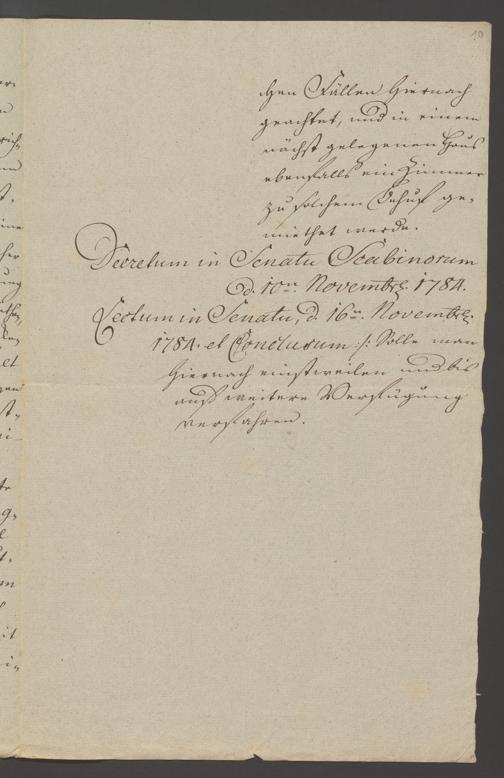 10
chen Fällen hiernach
geachtet, und in einem
nächst gelegenen Haus
ebenfalls ein Zimmer
zu solchem Behuf ge-
miethet werde.
Decretum in Senatu Scabinorum
d. 10ten Novembrs. 1784.
Lectum in Senatu, d. 16ten Novembrs.
1784. et Conclusum :/: Solle man
hiernach einstweilen und bis
auf weitere Verfügung
verfahren.